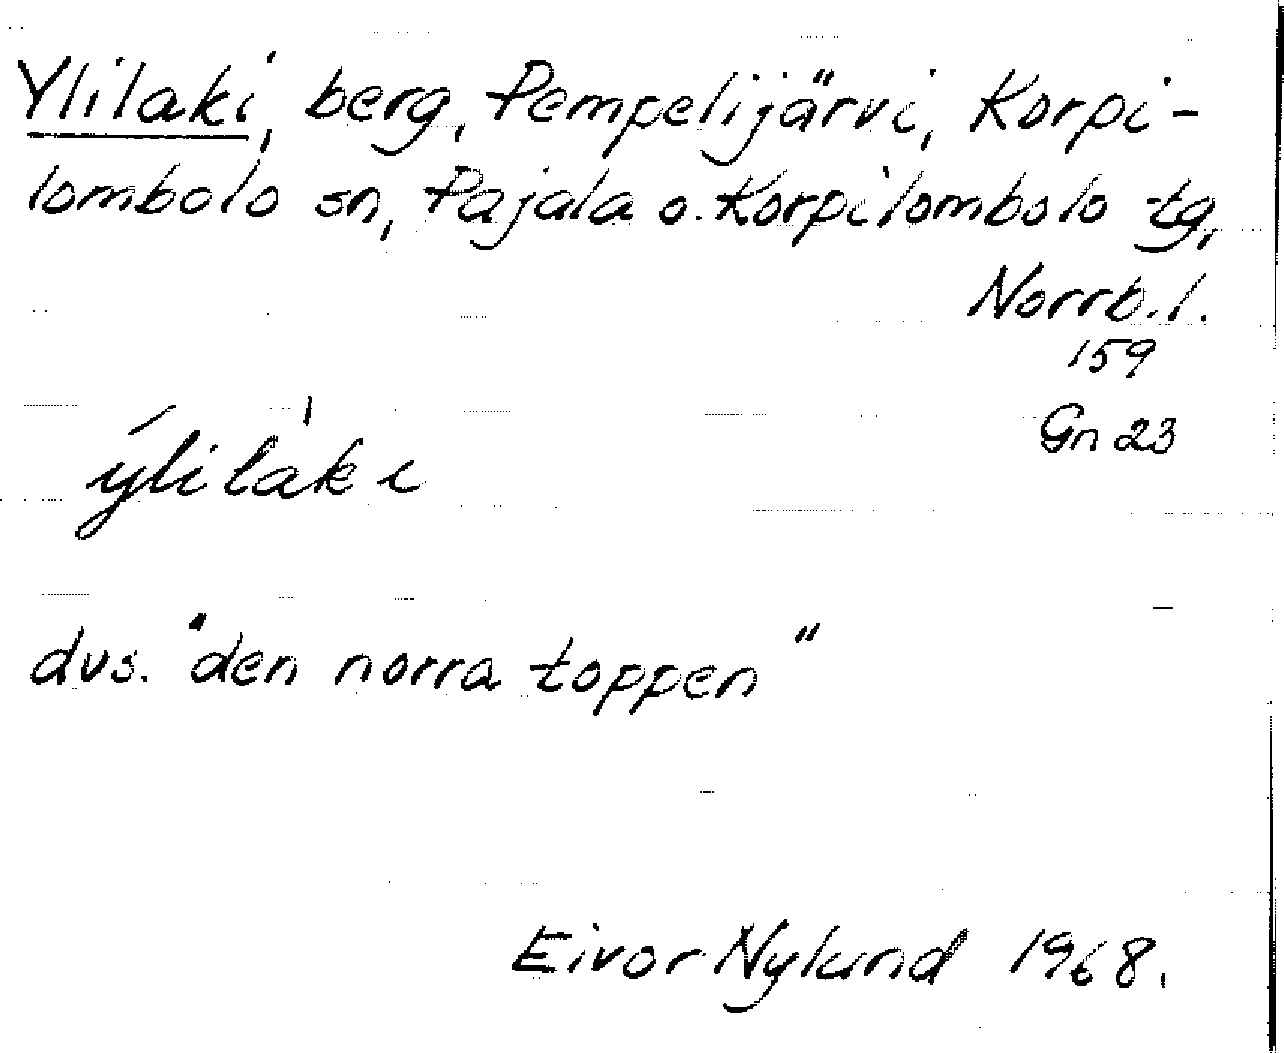 Ylilaki, berg, Pempelijärvi, Korpi-
lombolo sn, Pajala o. Korpilombolo tg,
Norrb. l.
159
Gn 23
ýlilàki
dvs. "den norra toppen"
Eivor Nylund 1968.